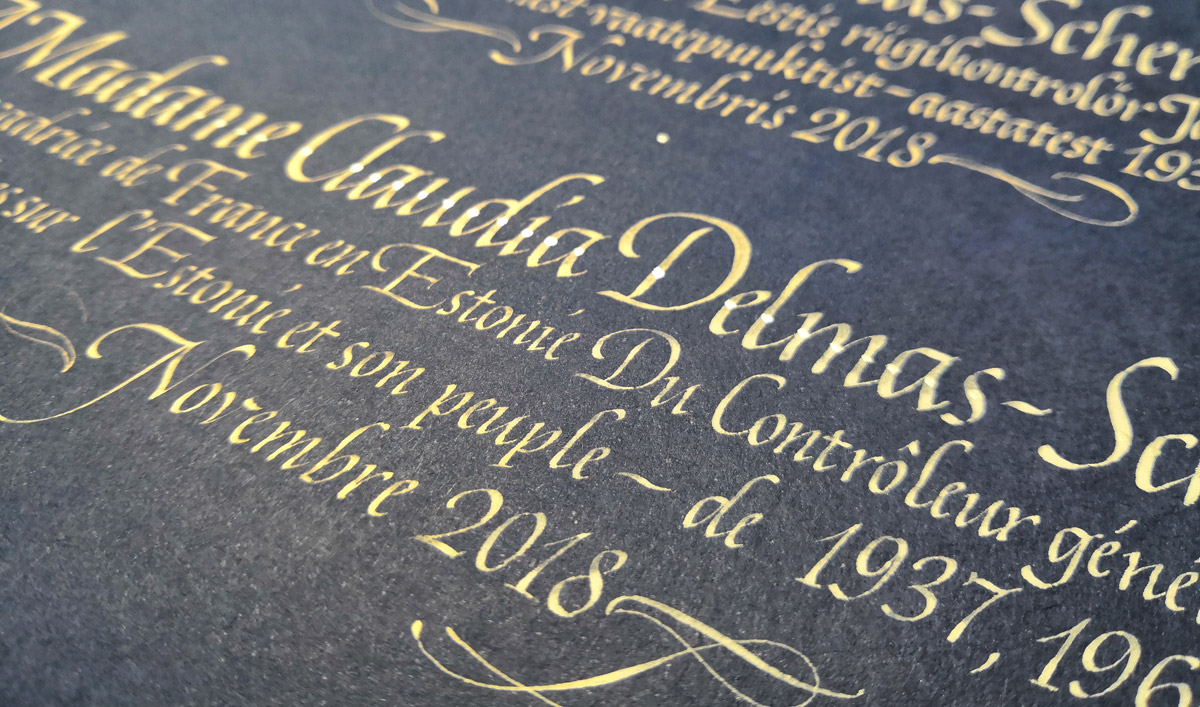 Scher
Eestis riigikontrolör
vaatepunktist - aastatest 193
Novembris 2018
Madame Claudia Delmas - Sc
de France en Estonie Du Contrôleur géné
sur l'Estonie et son peuple - de 1937, 196
Novembre 2018